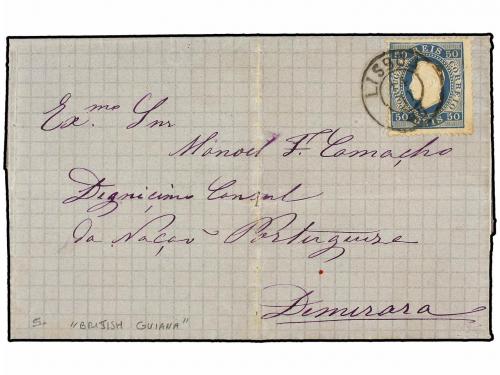 50 REIS CORREIO 50
50 REIS 50
LISBOA
Exmo Snr
Manoel F. Camacho
Dignicimo Consul
da Nação Portugueze
Demerara
5. "BRITISH GUIANA"